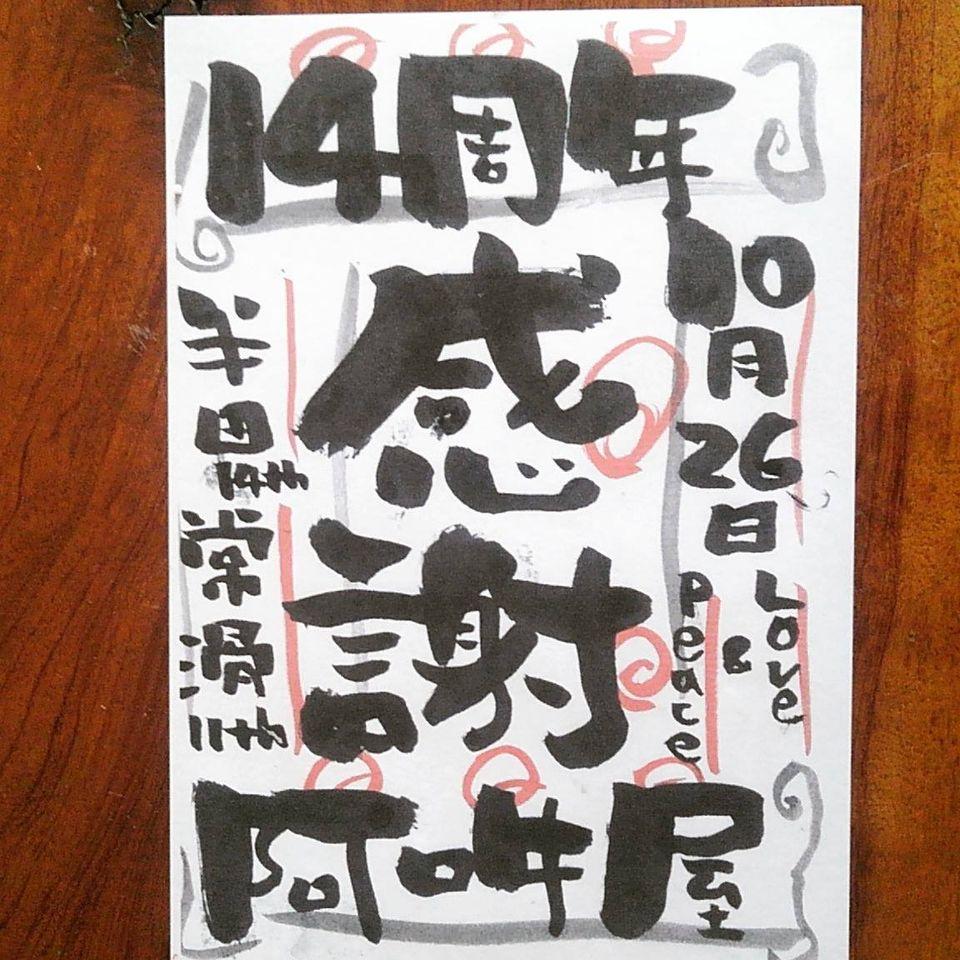 14周年
10月26日
Love
&
Peace
感謝
半田
常滑
阿吽屋